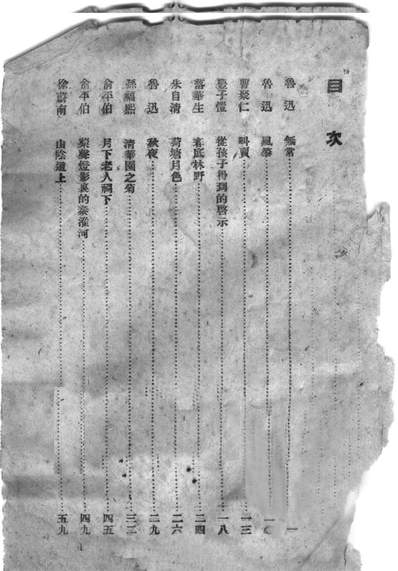 目次
魯迅 無常 一
魯迅 風箏 一〇
曹聚仁 叫賣 一三
豐子愷 從孩子得到的啓示 一八
落華生 春底林野 二四
朱自清 荷塘月色 二六
魯迅 秋夜 二九
孫福熙 清華園之菊 三二
俞平伯 月下老人祠下 四五
俞平伯 槳聲燈影裏的秦淮河 四九
徐蔚南 山陰道上 五九